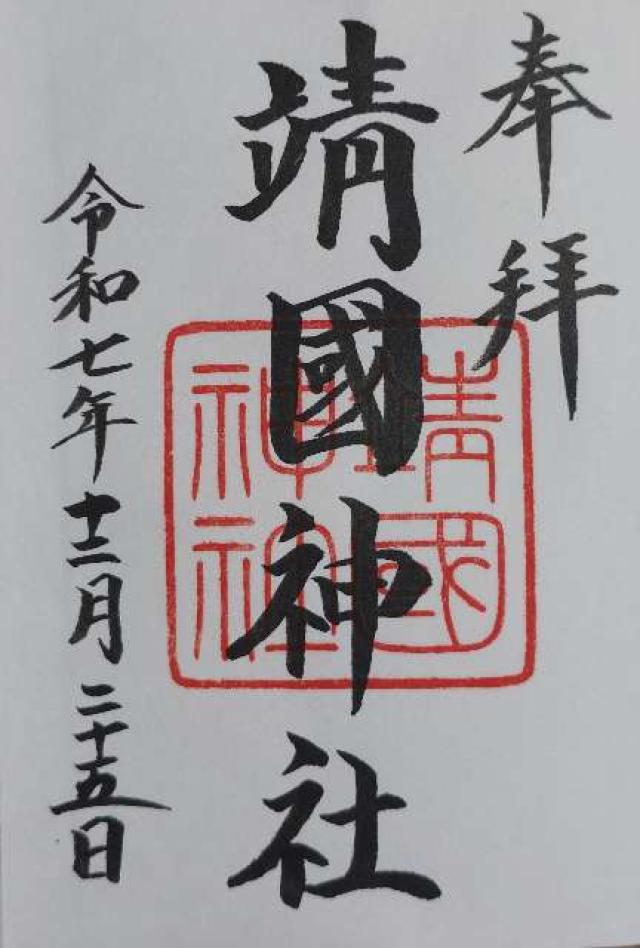 奉拝
靖國神社
靖國
神社
令和七年十二月二十五日